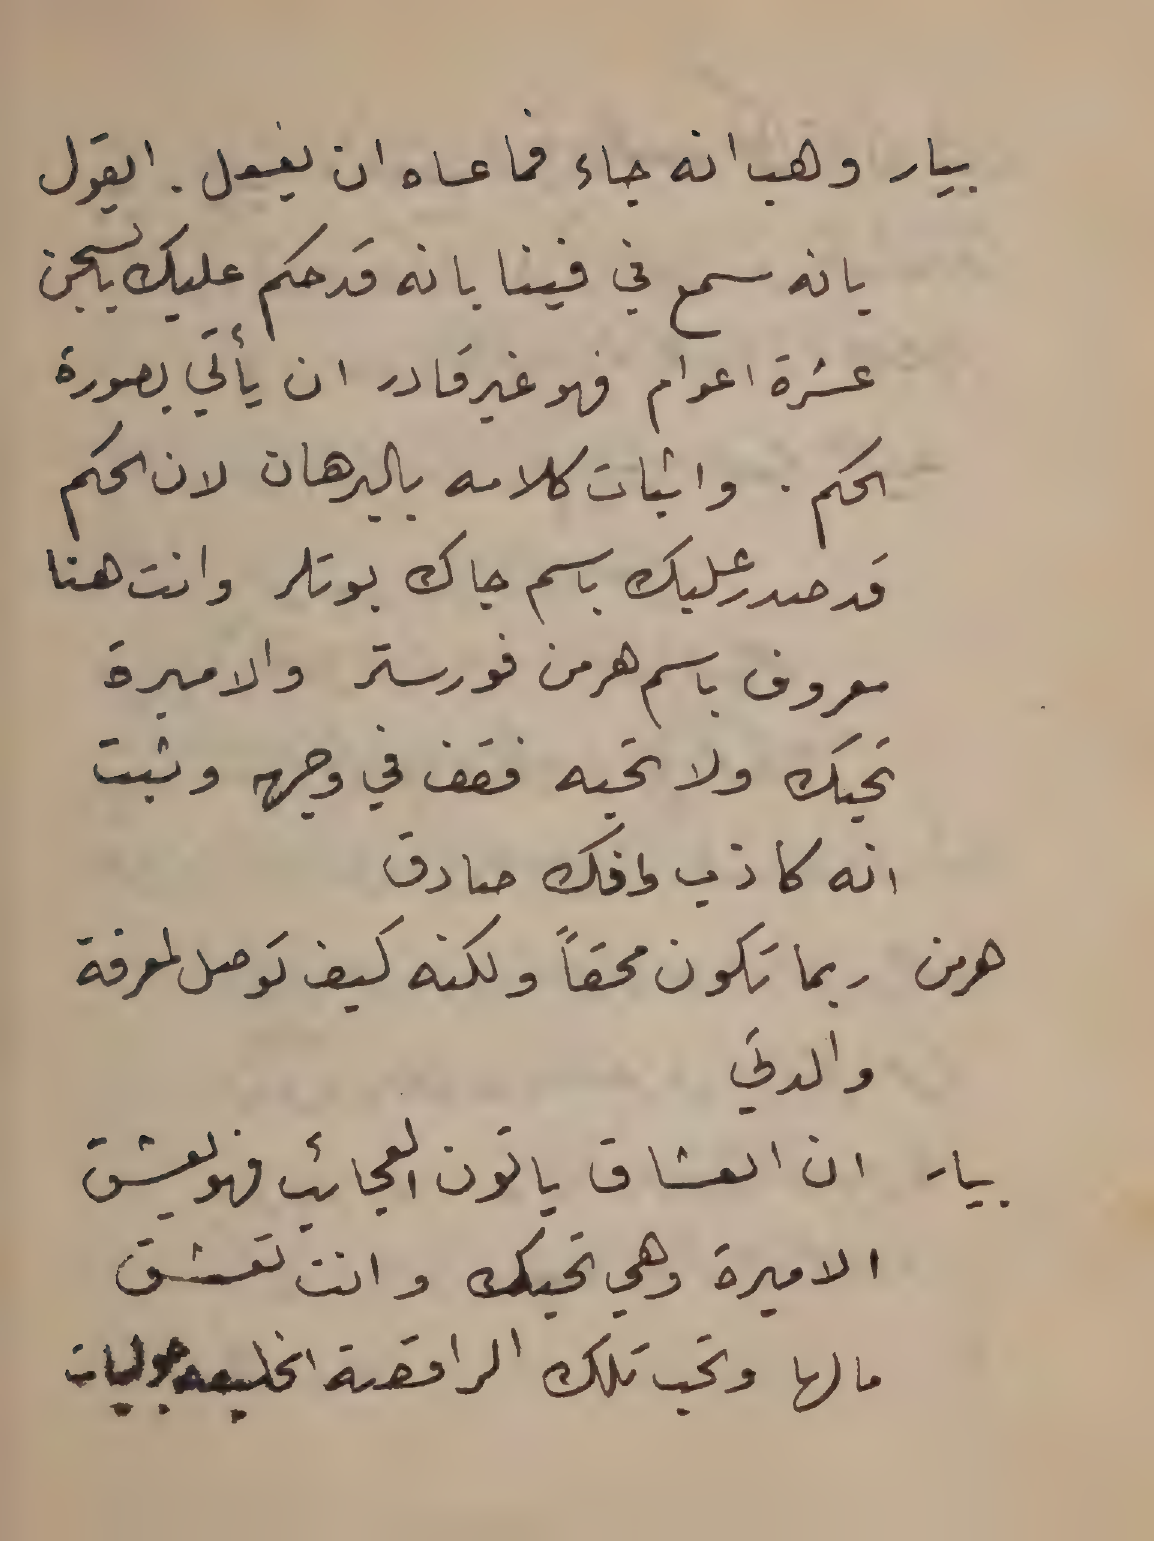 بيار وهب انه جاء فما عساه ان يفعل . ايقول
بانه سمع في فينا بانه قد حكم عليك بالسجن
عشرة اعوام فهو غير قادر ان يأتي بصورة
الحكم . واثبات كلامه بالبرهان لان الحكم
قد صدر عليك باسم جاك بوتلر وانت هنا
معروف باسم هرمن فورستر والاميرة
تحبك ولا تحبه فقف في وجهه وثبت
انه كاذب وانك صادق
هرمن ربما تكون محقاً ولكنه كيف توصل لمعرفة
والدتي
بيار ان العشاق ياتون العجائب فهو يعشق
الاميرة وهي تحبك وانت تعشق
مالها وتحب تلك الراقصة الخليعة